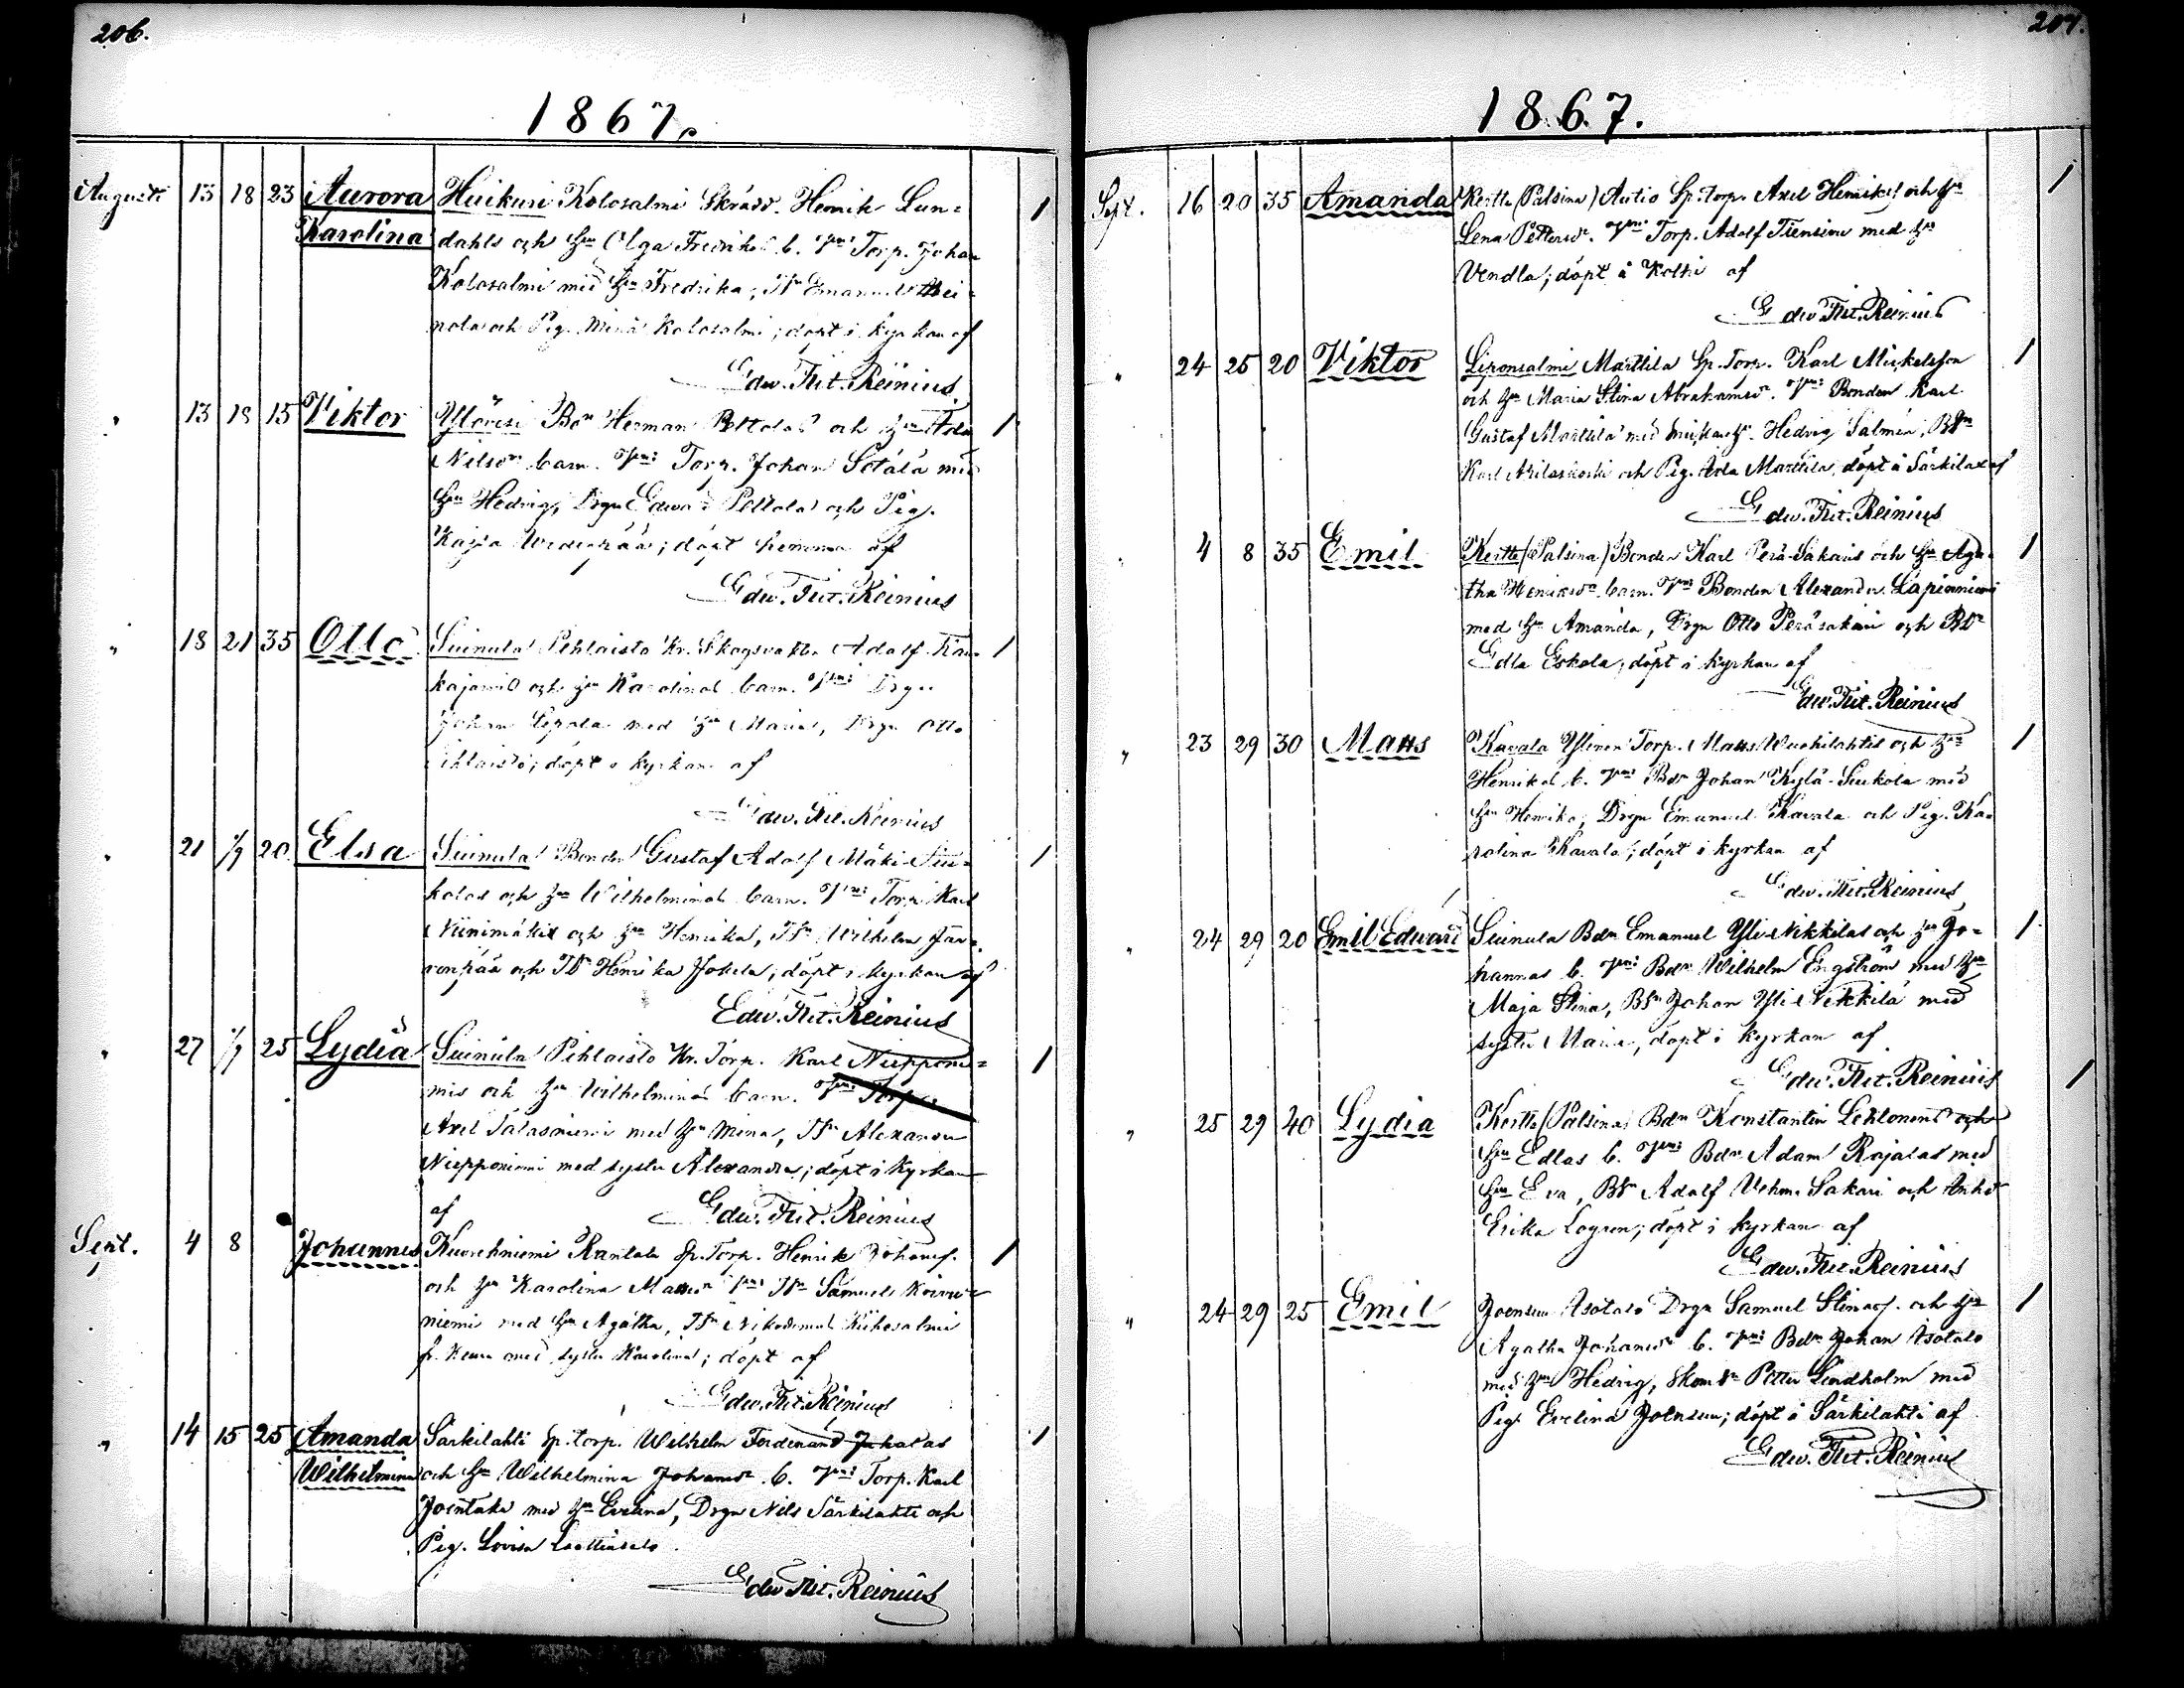 206.
1867.
Augusti 13 18 23 Aurora Huikuri Kolosalmi Skrädd. Henrik Lun=
Karolina dahls och hu Olga Fredrikas b. Vni Torp. Johan
Kolosalmi med hu Fredrika, Emanuel
nola och Pig. Mina Kolosalmi; döpt i kyrkan af
Edw. Fht. Reinius
" 13 18 15 Viktor Ylövesi Bdn Herman och hu Ada
Nilsdr barn. Vni Torp. Johan Sotala med
hu Hedvig, Drgn Edward Peltola och Pig.
Kajsa; döpt hemma af
Edw. Fht. Reinius
" 18 21 35 Otto Suinula Pehlaisto Kr. Skogsvakt. Adolf
och hu Karolinas barn. Vni Drgn
Johan med hu Maria, Drgn Otto
döpt i kyrkan af
Edw. Fht. Reinius
" 21 1/9 20 Elsa Suinula Bonden Gustaf Adolf Mäki-Siu=
kolas och hu Wilhelminas barn. Vni Torp. Karl
Niinimäki och hu Henrika, Wilhelm Jär=
venpää och Henrika Jokela; döpt i kyrkan af
Edw. Fht. Reinius
" 27 1/9 25 Lydia Suinula Pihlaisto Kr. Torp. Karl Niepponie=
mis och hu Wilhelminas barn. Vni Torp.
Axel Salasniemi med hu Mina, Alexander
Niepponiemi med syster Alexandra; döpt i kyrkan
af Edw. Fht. Reinius
Sept. 4 8 Johannes Kuorehniemi Rantala Sp. Torp. Henrik Johansf.
och hu Karolina Mattsdr Vni Samuel Koivu=
niemi med hu Agatha, Nikodemus Kiihesalmi
fr. Keuru med syster Karolina; döpt af
Edw. Fht. Reinius
" 14 15 25 Amanda Särkilahti Sp. torp. Wilhelm Ferdinand Juhalas
Wilhelmina och hu Wilhelmina Johansdr b. Vni Torp. Karl
Joentaka med hu Evelina, Drgn Nils Särkilahti och
Pig. Lovisa
Edw Fht. Reinius
207.
1867.
Sept. 16 20 35 Amanda Kertte (Palsina) Autio Sp. Torp. Axel Henriksf och hu
Lena Pettersdr. Vni Torp. Adolf Tiensuu med hu
Vendla; döpt i af
Edw Fht. Reinius
" 24 25 20 Viktor Liponsalmi Marttila Sp. Torp. Karl Mickelsson
och hu Maria Stina Abrahamsdr. Vni Bonden Karl
Gustaf Marttila med Hedvig Salmén, Bsn
Karl och Pig. Ada Marttila; döpt i Särkilax af
Edw. Fht. Reinius
" 4 8 35 Emil Kertte (Palsina) Bonden Karl Perä-Sakaris och hu Aga=
tha Henriksdr barn. Vni Bonden Alexander Lapinniemi
med hu Amanda, Drgn Otto Peräsakari och Bdr
Edla Eskola; döpt i kyrkan af
Edw. Fht. Reinius
" 23 29 30 Matts Kavala Ylinen Torp. Matts Wuohilahtis och hu
Henrikas b. Vni Bdn Johan Kylä-Siukola med
hu Henrika, Drgn Emanuel Kavala och Pig. Ka=
rolina Kavala; döpt i kyrkan af
Edw. Fht. Reinius
" 24 29 20 Emil Edward Suinula Bdn Emanuel Yli-Nikkilas och hu Jo=
hannas b. Vni Bdn Wilhelm Engström med hu
Maja Stina, Bsn Johan Yli-Nikkilä med
syster Maria, döpt i kyrkan af
Edw. Fht. Reinius
" 25 29 40 Lydia Kertte (Palsina) Bdn Konstantin Lehtonens och
hu Edlas b. Vni Bdn Adam Rajalas med
hu Eva, Bsn Adolf Sakari och
Erika Logren; döpt i kyrkan af
Edw. Fht. Reinius
" 24 29 25 Emil Joensuu Isotalo Drgn Samuel Stinasf. och hu
Agatha Johansdr b. Vni Bdn Johan Isotalo
med hu Hedvig, Petter Lindholm med
Pig. Evelina Joensuu; döpt i Särkilahti af
Edw. Fht. Reinius